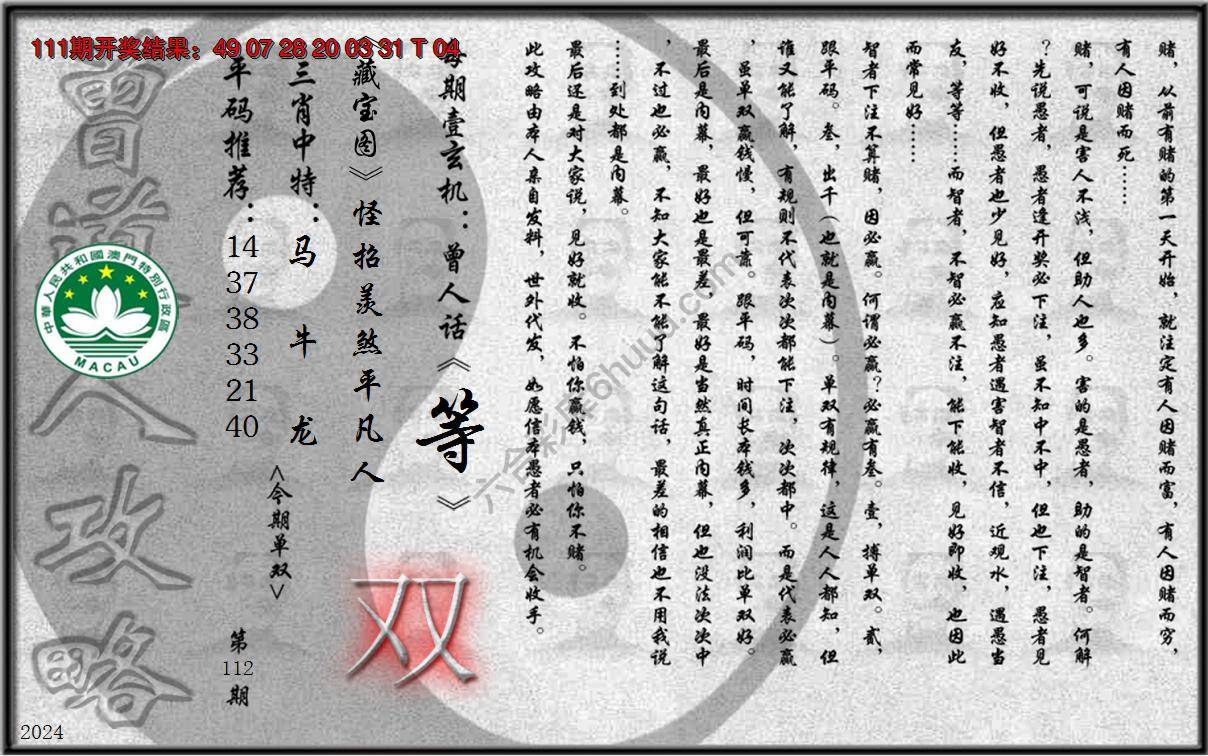 111期开奖结果：49 07 28 20 03 31 T 04
赌，从前有赌的第一天开始，就注定有人因赌而富，有人因赌而穷，
有人因赌而死……
赌，可说是害人不浅，但助人也多。害的是愚者，助的是智者。何解
？先说愚者，愚者逢开奖必下注，虽不知中不中，但也下注，愚者见
好不收，但愚者也少见好，应知愚者遇害智者不信，近观水，遇愚当
友，等等……而智者，不智必赢不注，能下能收，见好即收，也因此
而常见好……
智者下注不算赌，因必赢。何谓必赢？必赢有叁。壹，搏单双。贰，
跟平码。叁，出千（也就是内幕）。单双有规律，这是人人都知，但
谁又能了解，有规则不代表次次都能下注，次次都中。而是代表必赢
，虽单双赢钱慢，但可靠。跟平码，时间长本钱多，利润比单双好。
最后是内幕，最好也是最差，最好是当然真正内幕，但也没法次次中
，不过也必赢，不知大家能不能了解这句话，最差的相信也不用我说
……到处都是内幕。
最后还是对大家说，见好就收。不怕你赢钱，只怕你不赌。
此攻略由本人亲自发料，世外代发，如愿信本愚者必有机会收手。
每期壹玄机：曾人话《等》
《藏宝图》怪招羡煞平凡人
双
三肖中特：马 牛 龙
<今期单双>
平码推荐：
14
37
38
33
21
40
第
112
期
曾道人攻略
中華人民共和國澳門特別行政區
MACAU
2024
六合彩库6huuu.com